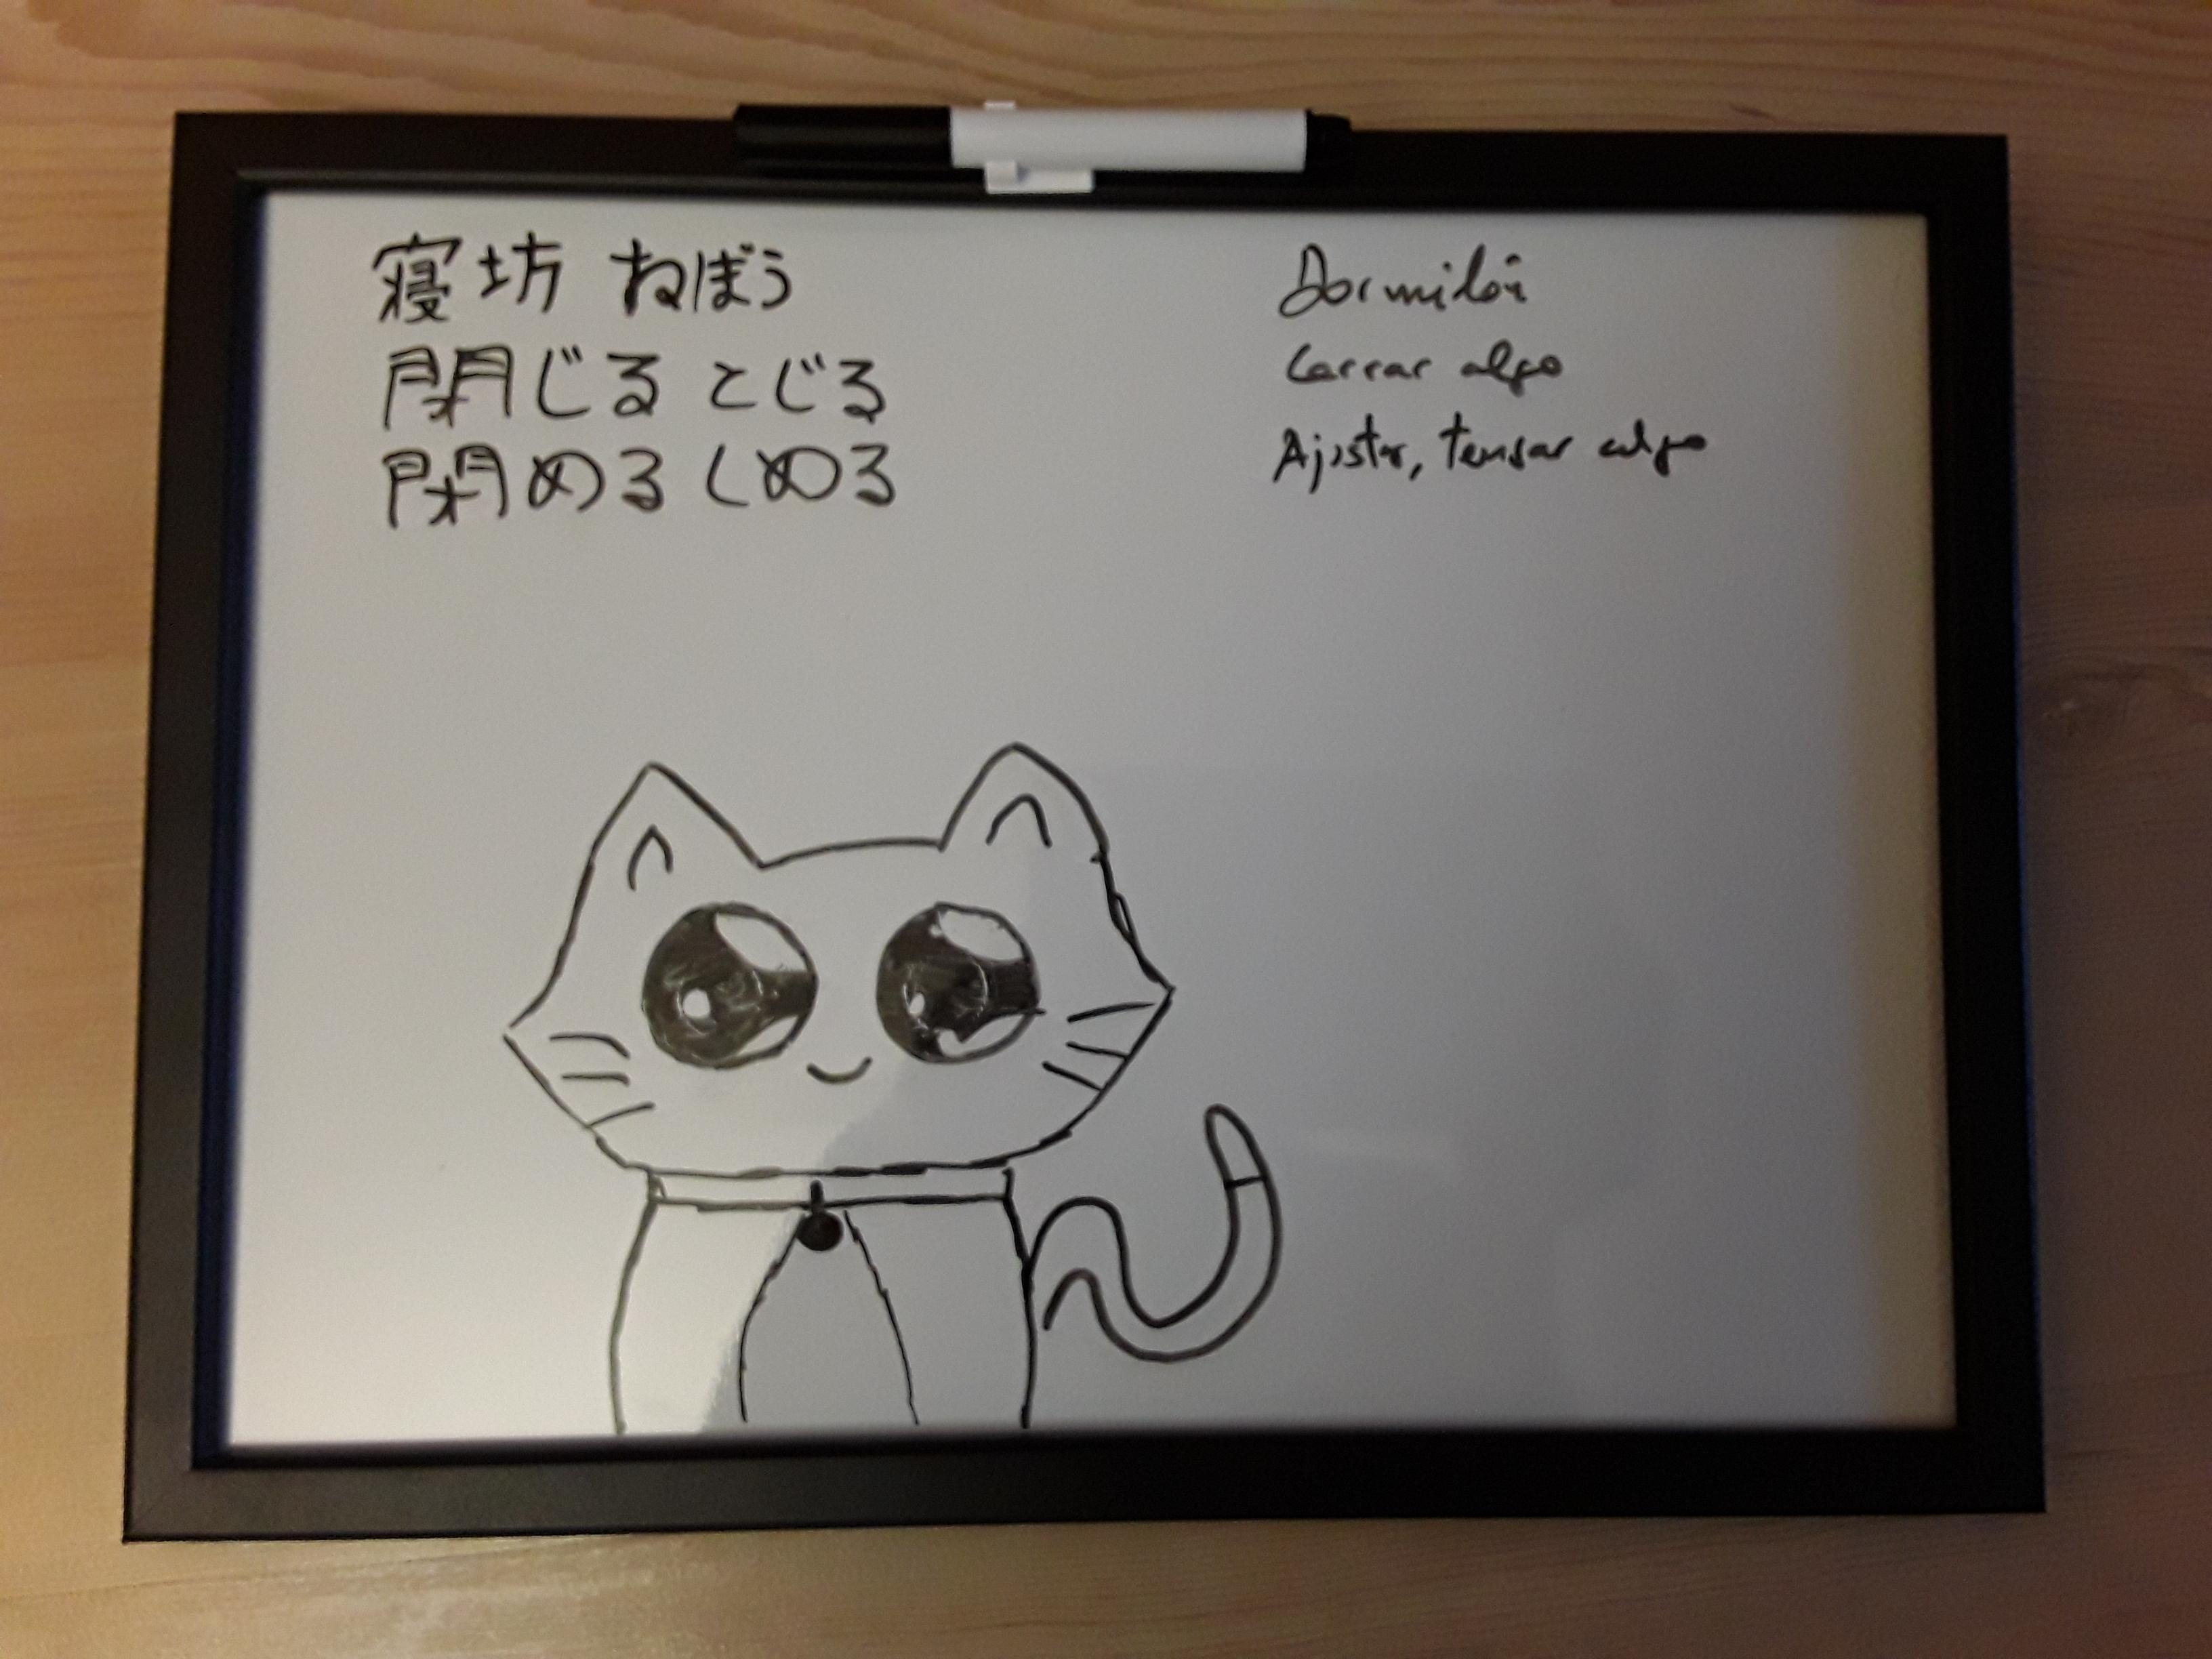 寝坊 ねぼう Dormilón
閉じる とじる Cerrar algo
閉める しめる Ajustar, tensar algo